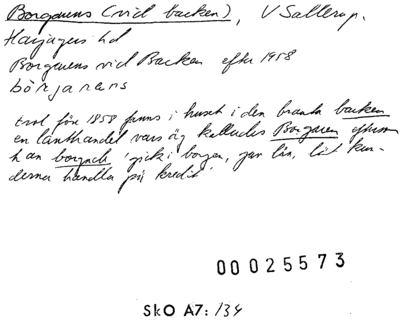 Borgarens (vid backen), V Sallerup.
Harjagers hd
Borgarens vid Backen efter 1958
börjarens
trol före 1858 fanns i huset i den branta backen
en lanthandel vars äg kallades Borgaren eftersom
han borgade 'gick i borgen, gav lån, lät kun-
derna handla på kredit'
00025573
SkO A7: 134